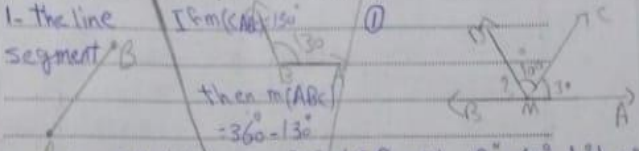 1- the line
segment
B
A
If m(CAB)=130°
130
B
A
then m(ABC)
=360°-130°
①
D
C
?
B
M
A